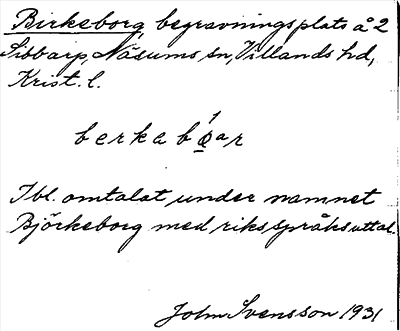 Birkeborg, begravningsplats å 2
Sibbarp, Näsums sn, Villands hd,
Krist. l.
berkabǫ́ar
Ibl. omtalat under namnet
Björkeborg med riksspråksuttal.
John Svensson 1931